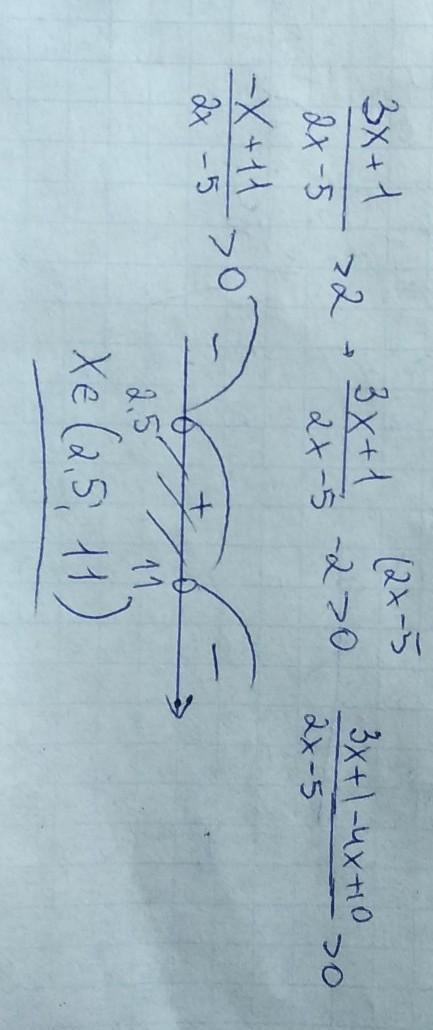 (2x-5
(3x+1)/(2x-5) >2 , (3x+1)/(2x-5) -2>0 (3x+1-4x+10)/(2x-5) >0
(-x+11)/(2x-5) >0
- + -
2,5 11
x∈(2,5; 11)